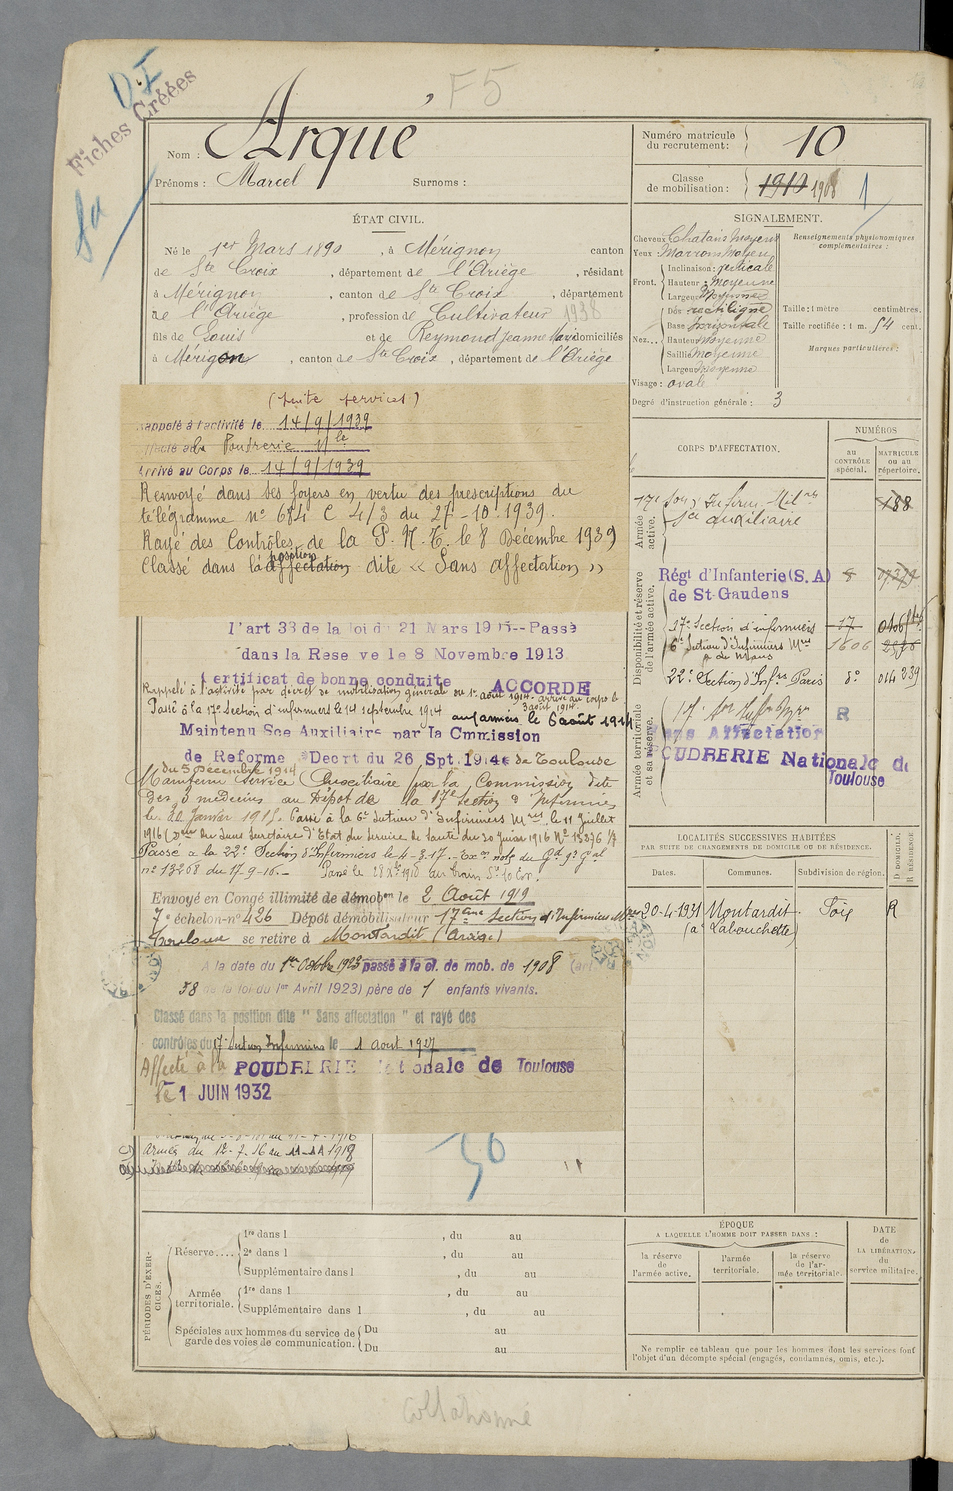 F5
D.I
Fiches Créées
Nom : Arqué
Prénoms : Marcel Surnoms :
Numéro matricule du recrutement : 10
Classe de mobilisation : 1910 1908 1
ÉTAT CIVIL.
Né le 1er Mars 1890, à Mérignon canton
de Ste Croix, département de l'Ariège, résidant
à Mérignon, canton de Ste Croix, département
de l'Ariège, profession de Cultivateur 1938
fils de Louis et de Reymond Jeanne Marie domiciliés
à Mérigon, canton de Ste Croix, département de l'Ariège
SIGNALEMENT.
Cheveux Chatains Moyens
Yeux Marrons Moyen
Front. Inclinaison : verticale
Hauteur : Moyenne
Largeur Moyenne
Nez... Dos rectiligne
Base horizontale
Hauteur Moyenne
Saillie Moyenne
Largeur Moyenne
Visage : ovale
Degré d'instruction générale : 3
Renseignements physionomiques complémentaires :
Taille : 1 mètre centimètres.
Taille rectifiée : 1 m. 54 cent.
Marques particulières :
(suite services)
Rappelé à l'activité le 14/9/1939
Affecté à la Poudrerie Nle
Arrivé au Corps le 14/9/1939
Renvoyé dans ses foyers en vertu des prescriptions du
télégramme n° 684 C 4/3 du 27-10-1939.
Rayé des Contrôles de la P. N. T. le 8 Décembre 1939
Classé dans la affectation position dite « Sans affectation »
l'art 33 de la loi du 21 Mars 1905--Passé
dans la Reserve le 8 Novembre 1913
Certificat de bonne conduite ACCORDE
Rappelé à l'activité par décret de mobilisation générale du 1er août 1914. arrivé au corps le
3 août 1914.
Passé à la 17e Section d'infirmiers le 14 septembre 1914 aux armées le 6 août 1914
Maintenu Sce Auxiliaire par la Cmmission
de Reforme Decrt du 26 Spt 1914 de Toulouse
du 5 Decembre 1914
Maintenu Service Auxiliaire par la Commission dite
des 3 médecins au Dépôt de la 17e Section d'Infirmiers
le 20 Janvier 1915. Passé à la 6e Section d'Infirmiers Mres le 11 Juillet
1916 du Sous Secrétaire d'Etat du Service de Santé du 30 Juin 1916
Passé à la 22e Section d'Infirmiers le 4-3-17.
n° 13268 du 17-9-16.-
Envoyé en Congé illimité de démob le 2 Août 1919
7e échelon-n° 426 Dépôt démobilisateur 17ème Section d'Infirmiers
Toulouse se retire à Montardit (Ariège)
A la date du 1er Octobre 1923 passé à la cl. de mob. de 1908 (art
58 de la loi du 1er Avril 1923) père de 1 enfants vivants.
Classé dans la position dite " Sans affectation " et rayé des
contrôles du 17e Section Infirmiers le 1 août 1927
Affecté à la POUDRERIE Nationale de Toulouse
le 1 JUIN 1932
armées du 12-7-16 au 11-11 1918
56
CORPS D'AFFECTATION.
NUMÉROS
au CONTRÔLE spécial.
MATRICULE ou au répertoire.
Armée active.
17e Son Infirm. Mil res
Sce auxiliaire
188
Disponibilité et réserve de l'armée active.
Régt d'Infanterie (S. A)
de St-Gaudens
17e Section d'infirmiers 17
6e Section d'Infirmiers Mres 1606
du Mans
22e Section d'Infres Paris 8° 014239
Armée territoriale et sa réserve.
17e Son Infres Mres R
Sans Affectation
POUDRERIE Nationale de
Toulouse
LOCALITÉS SUCCESSIVES HABITÉES
PAR SUITE DE CHANGEMENTS DE DOMICILE OU DE RÉSIDENCE.
Dates. Communes. Subdivision de région.
D DOMICILE. R RÉSIDENCE
20-4-1931 Montardit Foix R
(à Labouchette)
PÉRIODES D'EXERCICES.
Réserve.... 1re dans l , du au
2e dans l , du au
Supplémentaire dans l , du au
Armée territoriale. 1re dans l , du au
Supplémentaire dans l , du au
Spéciales aux hommes du service de garde des voies de communication. Du au
Du au
ÉPOQUE
A LAQUELLE L'HOMME DOIT PASSER DANS :
la réserve de l'armée active.
l'armée territoriale.
la réserve de l'armée territoriale.
DATE de LA LIBÉRATION du service militaire.
Ne remplir ce tableau que pour les hommes dont les services font
l'objet d'un décompte spécial (engagés, condamnés, omis, etc.).